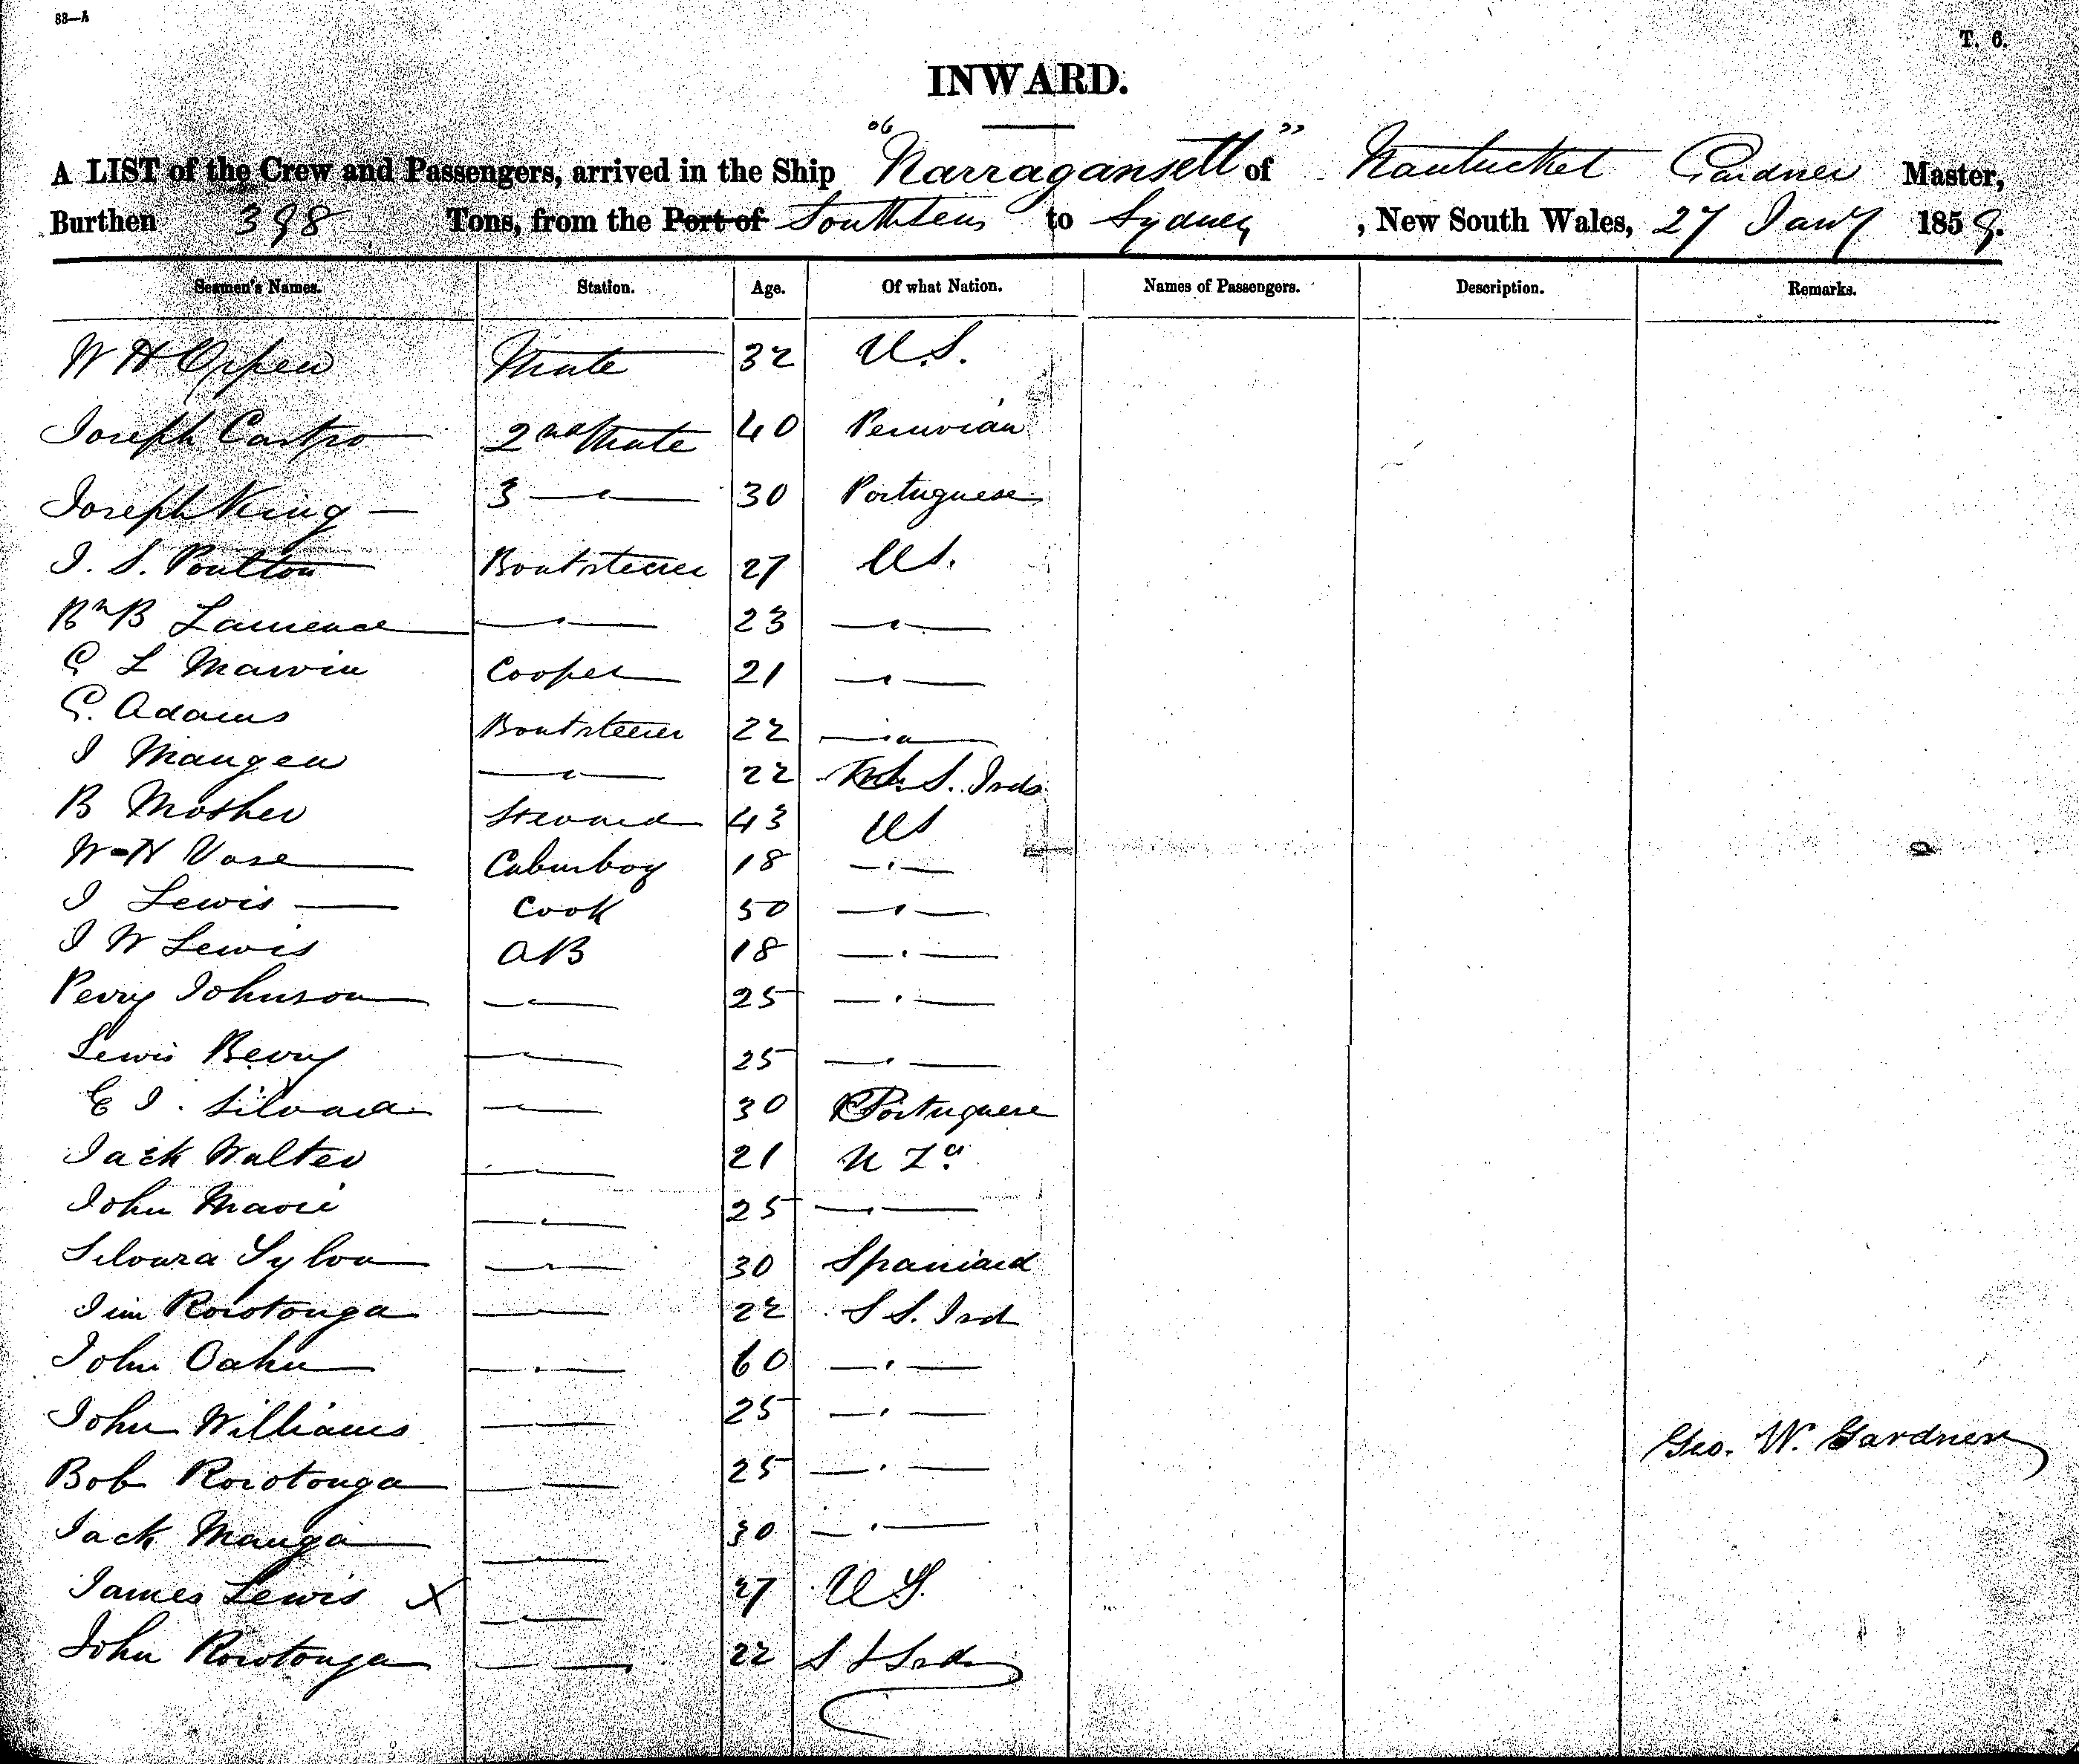 83—A
T. 6.
INWARD.
A LIST of the Crew and Passengers, arrived in the Ship "Narragansett" of Nantucket Gardner Master,
Burthen 398 Tons, from the Port of South Seas to Sydney, New South Wales, 27 Jany 1859.
Seamen's Names. Station. Age. Of what Nation. Names of Passengers. Description. Remarks.
W H Orpen Mate 32 U.S.
Joseph Castro 2nd Mate 40 Peruvian
Joseph King — 3 — " — 30 Portuguese
J. S. Poulton Boatsteerer 27 US.
Bn B Lawrence — " — 23 — " —
G L Marvin Cooper 21 — " —
G. Adams Boatsteerer 22 — " —
J Mangen — " — 22 S. Isds
B Mosher Steward 43 US
W H Vose Cabinboy 18 — " —
J Lewis — Cook 50 — " —
J W Lewis AB 18 — " —
Perry Johnson — " — 25 — " —
Lewis Berry — " — 25 — " —
E J. Silvara — " — 30 Portuguese
Jack Walter — " — 21 N Zd
John Marie — " — 25 — " —
Silvara Sylva — " — 30 Spaniard
Jim Rorotonga — " — 22 S S. Isd
John Oahu — " — 60 — " —
John Williams — " — 25 — " —
Bob Rorotonga — " — 25 — " —
Jack Manga — " — 30 — " —
James Lewis X — " — 27 US.
John Rorotonga — " — 22 S S Isds
Geo. W. Gardner